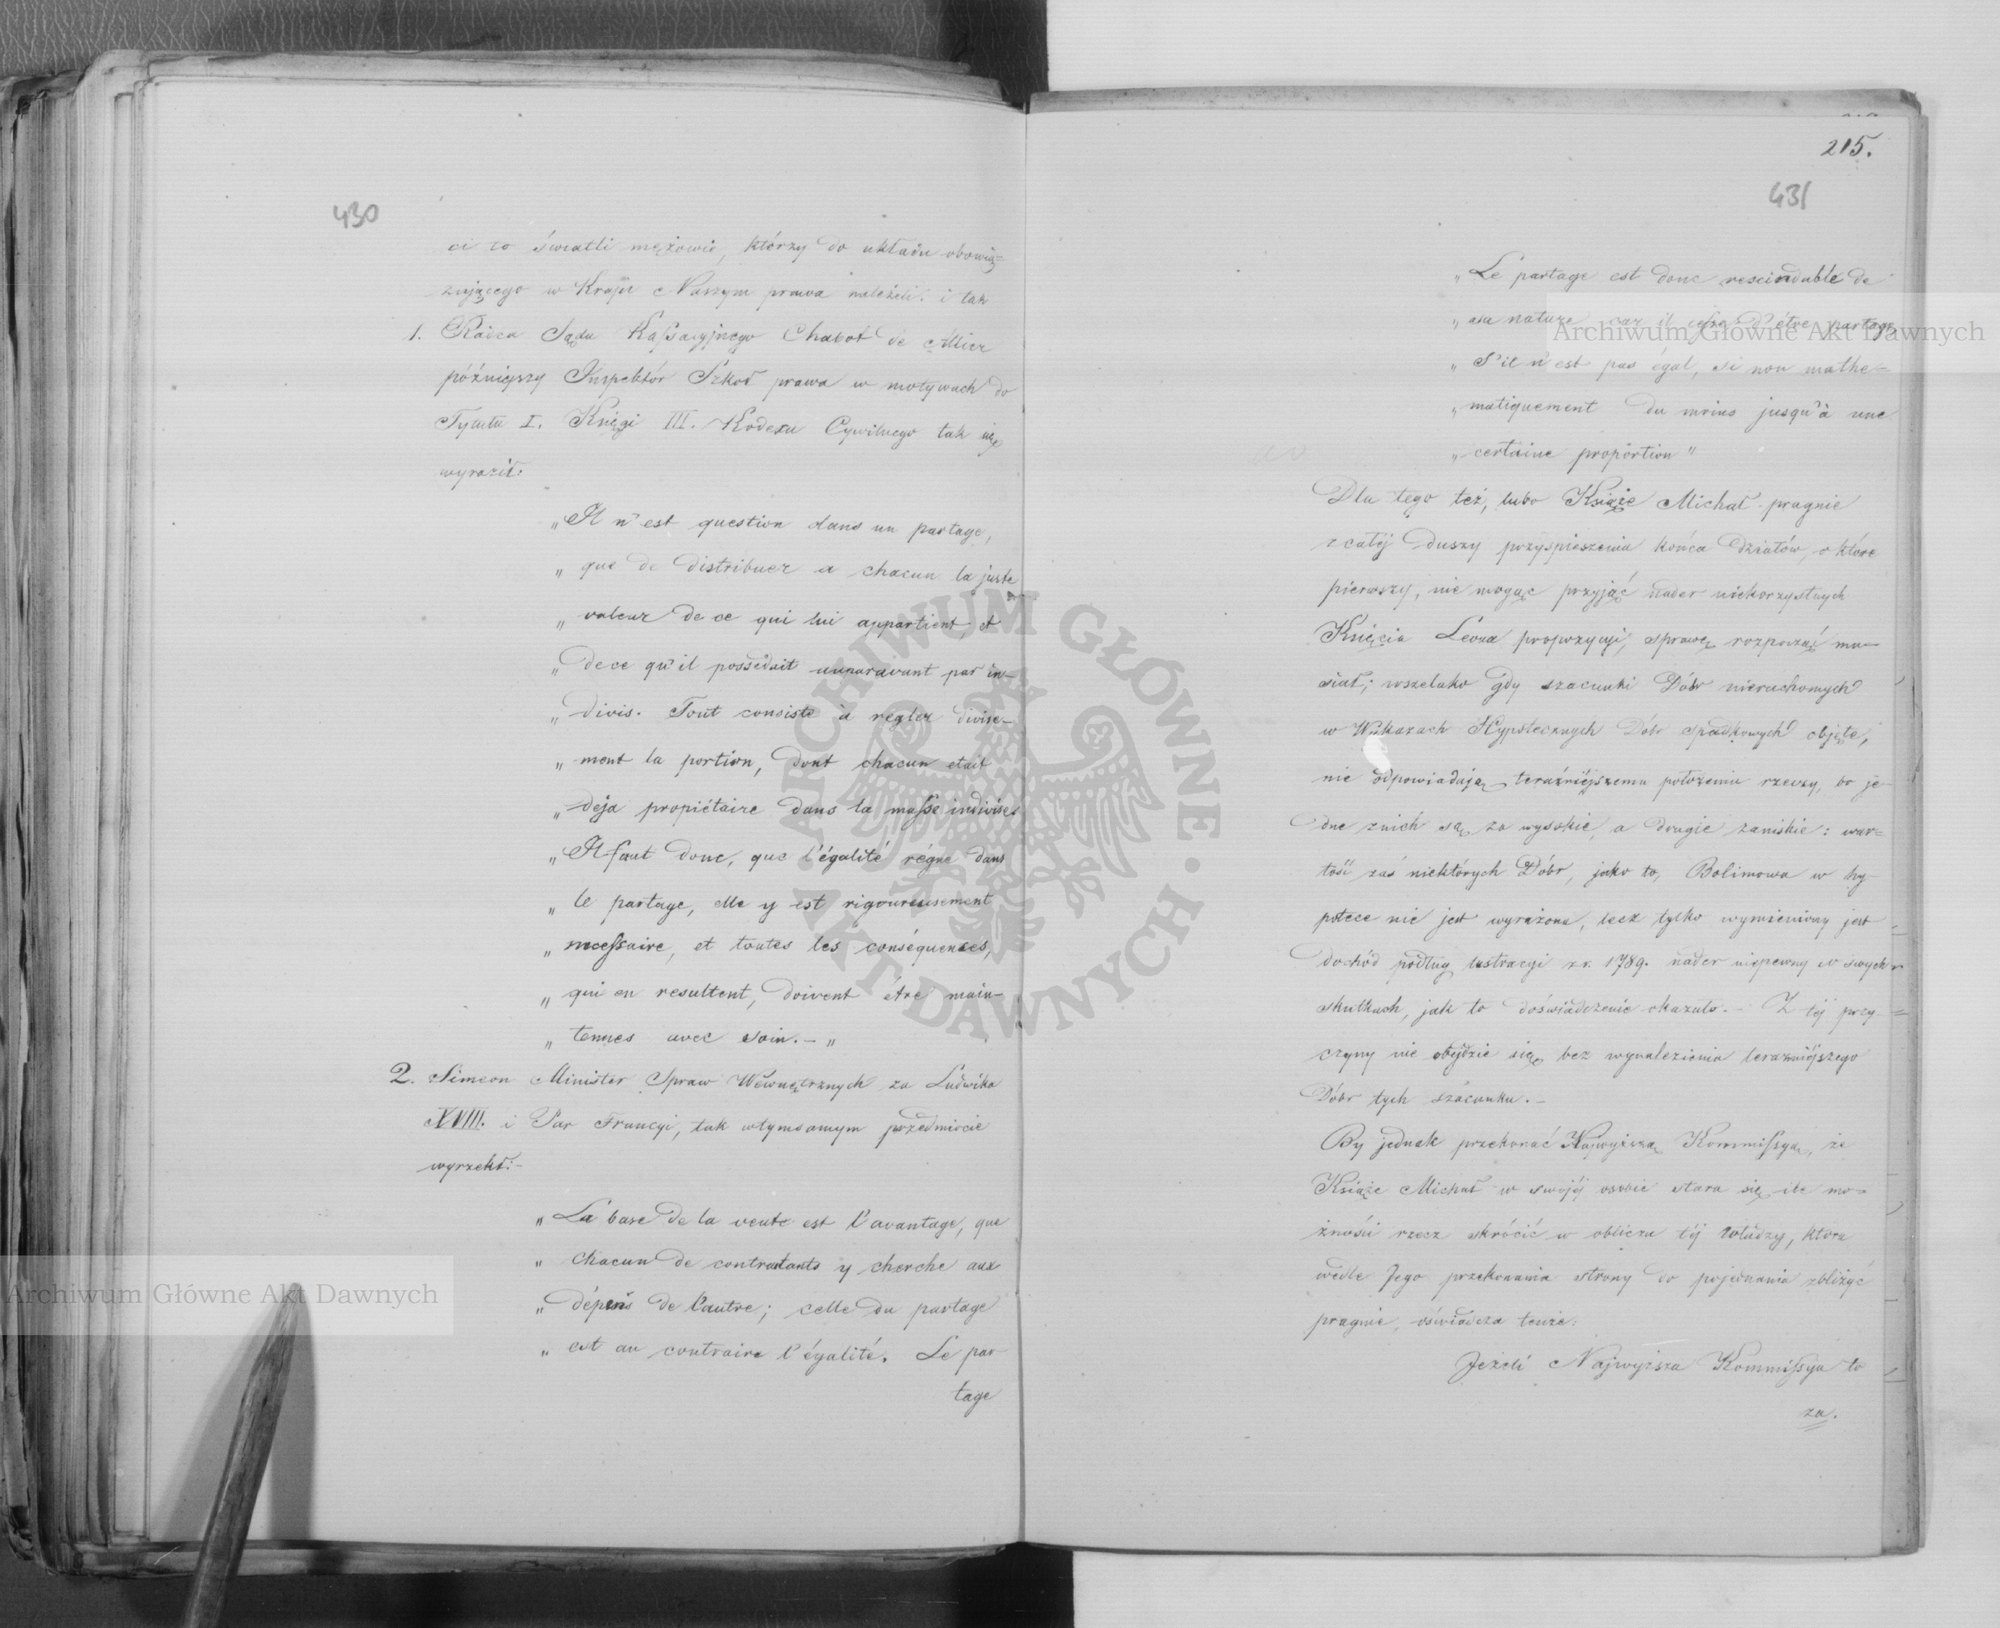 430
ci to światli mężowie, którzy do układu obowią=
zującego w Kraju Naszym prawa należeli. i tak
1. Radca Sądu Kassacyjnego Chabot de Allier
późniejszy Inspektór Szkoł prawa w motywach do
Tytułu I. Księgi III. Kodexu Cywilnego tak się
wyraził:
„Il n'est question dans un partage,
„ que de distribuer a chacun la juste
„ valeur de ce qui lui appartient, et
„ de ce qu'il possédait auparavant par in-
„ divis. Tout consiste à regler divise-
„ ment la portion, dont chacun etait
„ deja propiétaire dans la masse indivise.
„ Il faut donc, que l'égalité régne dans
„ le partage, elle y est rigoureusement
„ necessaire, et toutes les conséquences,
„ qui en resultent, doivent être main-
„ tenues avec soin. – „
2. Simeon Minister Spraw Wewnętrznych za Ludwika
XVIII. i Par Francyi, tak wtymsamym przedmiocie
wyrzekł:-
„ La base de la vente est l'avantage, que
„ chacun de contractants y cherche aux
„ dépens de l'autre; celle du partage
„ est au contraire l'égalité. Le par-
tage
215.
431
„ Le partage est donc rescindable de
„ sa nature, car il cesse d'être partage
„ S'il n'est pas égal, si non mathe-
„ matiquement du moins jusqu'à une
„ certaine propórtion "
Dla tego też, lubo Książe Michał pragnie
z całéj duszy przyspieszenia końca działów, o które
pierwszy, nie mogąc przyjąć nader niekorzystnych
Księcia Leona propozycyi, sprawę rozpocząć mu-
siał; wszelako gdy szacunki Dóbr nieruchomych
w Wykazach Hypotecznych Dóbr spadkowych objęte,
nie odpowiadają teraźniéjszemu położeniu rzeczy, bo je-
dne znich są za wysokie, a drugie zaniskie: war=
tość zaś niektórych Dóbr, jako to, Bolimowa w hy-
potece nie jest wyrażona, lecz tylko wymieniony jest
dochód podług lustracyi z r. 1789. nader niepewny w swych
skutkach, jak to doświadczenie okazało. – Z téj przy-
czyny nie obejdzie się bez wynalezienia teraźniéjszego
Dóbr tych szacunku. –
By jednak przekonać Najwyższą Kommissyą, że
Książe Michał w swojéj osobie stara się ile mo=
żności rzecz skrócić w obliczu téj władzy, która
wedle Jego przekonania strony do pojednania zbliżyć
pragnie, oświadcza tenże:
Jeżeli Najwyższa Kommissya to
za.
Archiwum Główne Akt Dawnych
Archiwum Główne Akt Dawnych
ARCHIWUM GŁÓWNE · AKT DAWNYCH ·